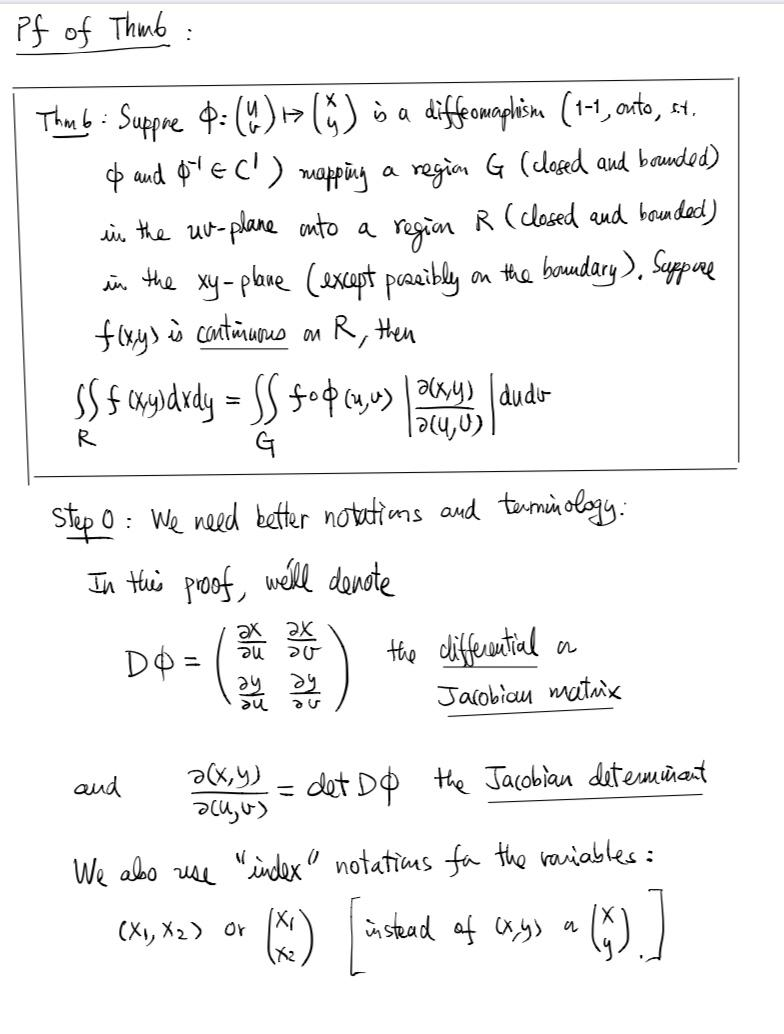 Pf of Thm6 :
Thm 6 : Suppose ϕ: (u v) ↦ (x y) is a diffeomorphism (1-1, onto, s.t.
ϕ and ϕ⁻¹ ∈ C¹) mapping a region G (closed and bounded)
in the uv-plane onto a region R (closed and bounded)
in the xy-plane (except possibly on the boundary). Suppose
f(x,y) is continuous on R, then
∬_R f(x,y)dxdy = ∬_G f∘ϕ(u,v) |∂(x,y)/∂(u,v)| dudv
Step 0 : We need better notations and terminology:
In this proof, we'll denote
Dϕ = (∂x/∂u ∂x/∂v ∂y/∂u ∂y/∂v) the differential or
Jacobian matrix
and ∂(x,y)/∂(u,v) = det Dϕ the Jacobian determinant
We also use "index" notations for the variables :
(x₁, x₂) or (x₁ x₂) [instead of (x,y) or (x y).]